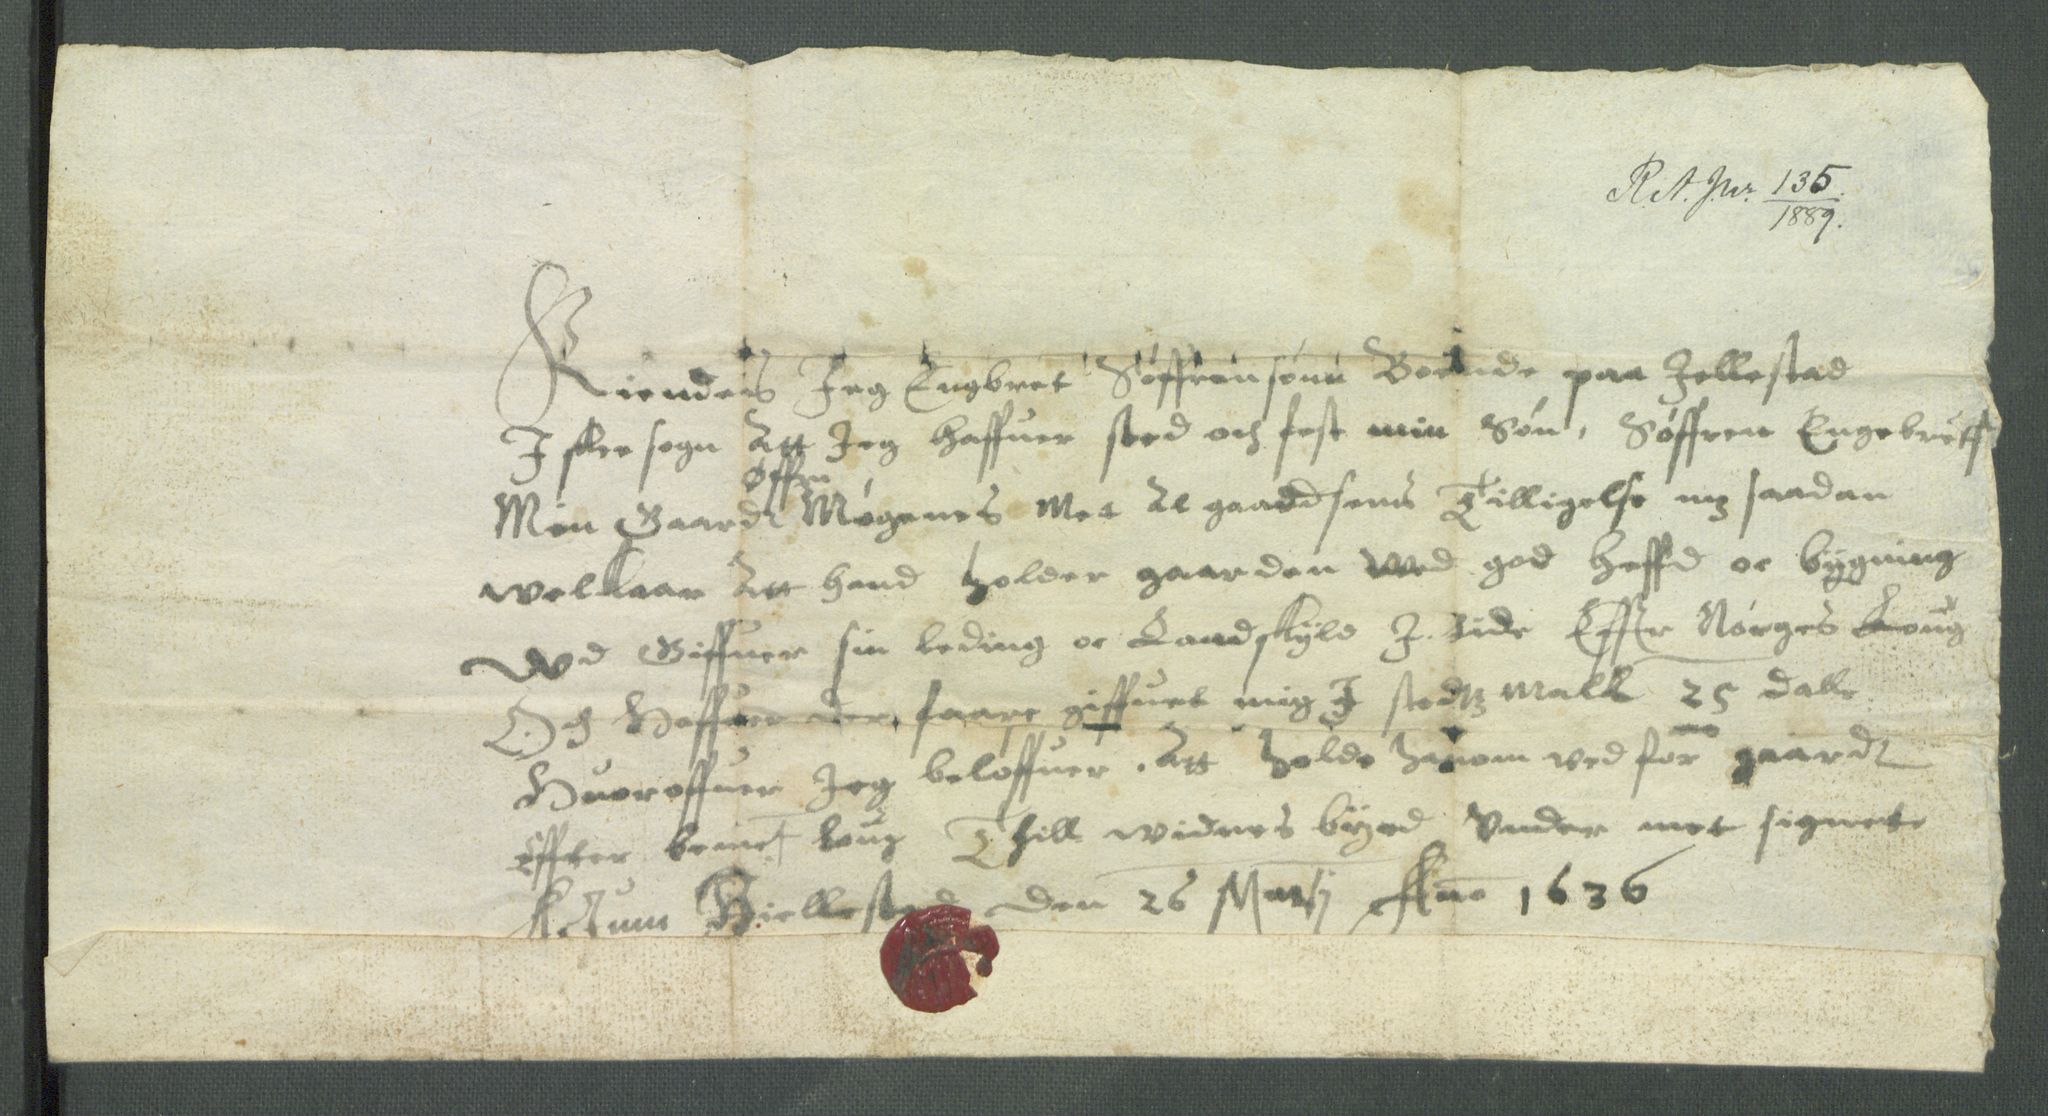 R.A. J.nr. 135/1889.
Kiendes Jeg Engbret Søffrensønn Boende paa Jellestad
I sker sogn Att Jeg haffuer sted och fest min Søn, Søffren Engebretss
Øffre
Min Gaardt Møgenes Met Al gaardsens Tilligelse mz saadan
welkaar Att hand holder gaarden wed god heffd oc bÿgning
wd Giffuer sin leding oc Landskÿld J. Tide Effter Nørges Loug
Och Haffuer der faare giffuet mig J stedtz mall 25 dalle
Huoroffuer Jeg beloffuer, Att holde hanom ved for gaardt
Effter bemet loug Thill widnes bÿrd Vnder met signete
Actum Hiellestad den 26 Marsÿ Ano 1636